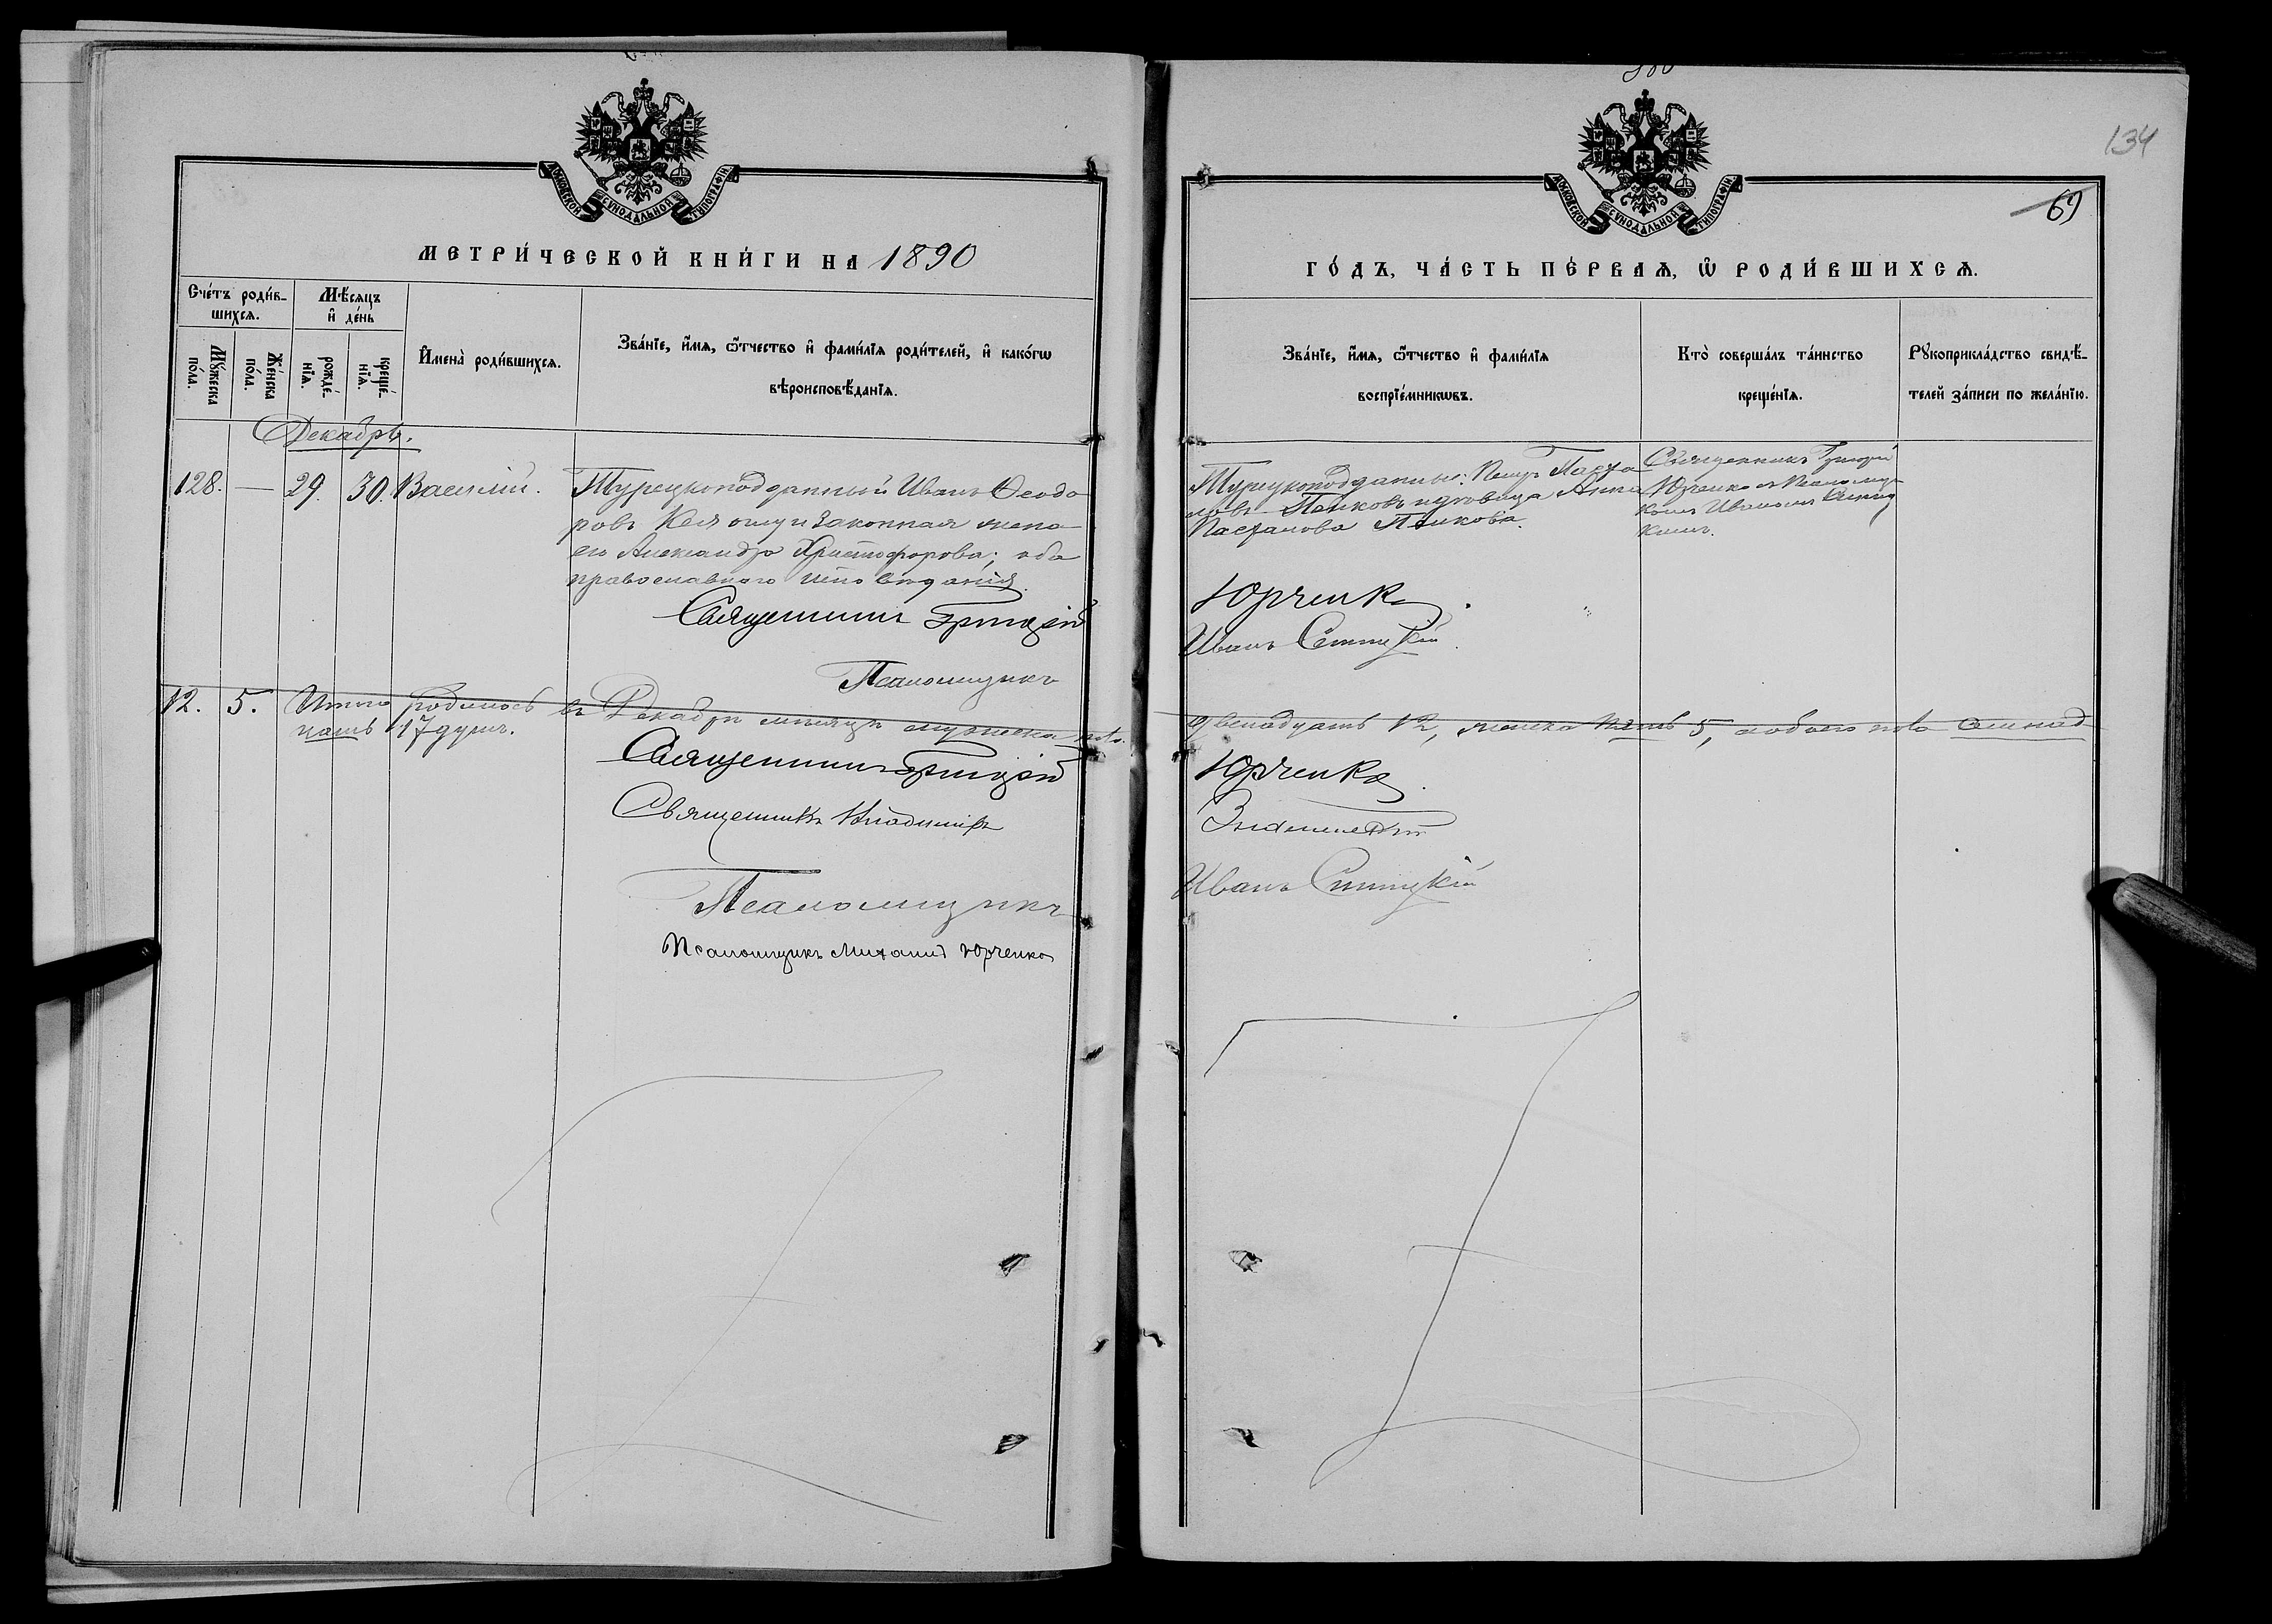 МОСКОВСКОЙ СѴНОДАЛЬНОЙ ТИПОГРАФІИ
МЕТРИ́ЧЕСКОЙ КНИ́ГИ НА 1890
Сче́тъ роди́в-
шихсѧ.
Мѣ́сѧцъ
и҆ де́нь
Мꙋ́жеска
по́ла.
Же́нска
по́ла.
рожде́-
нїѧ.
креще́-
нїѧ.
И҆мена̀ роди́вшихсѧ.
Зва́нїе, и҆́мѧ, ѻ҆́тчество и҆ фами́лїѧ роди́телей, и҆ како́гѡ
вѣроисповѣ́данїѧ.
Декабрь.
128. — 29. 30. Василій.
Турецкоподданный Иванъ Ѳеодо
ровъ и законная жена
его Александра Христофорова; оба
православнаго исповѣданія.
Священникъ Григорій
Псаломщикъ
12. 5. Итого родилось въ Декабрѣ мѣсяцѣ мужеска пола
цать 17 душъ.
Священникъ Григорій
Священникъ Владиміръ
Псаломщикъ
Псаломщикъ Михаилъ Юрченко
134
69
МОСКОВСКОЙ СѴНОДАЛЬНОЙ ТИПОГРАФІИ
ГО́ДЪ, ЧА́СТЬ ПЕ́РВАѦ, Ѡ҆ РОДИ́ВШИХСѦ.
Зва́нїе, и҆́мѧ, ѻ҆́тчество и҆ фами́лїѧ
воспрїе́мникѡвъ.
Кто̀ соверша́лъ та́инство
креще́нїѧ.
Рꙋкоприкла́дство свидѣ́-
телей за́писи по жела́нїю.
Турецкоподданные: Петръ
Пенковъ и дѣвица Анна
Пенкова.
Священникъ Григорій
Юрченко съ Псаломщи
комъ Иваномъ Синиц
кимъ.
Юрченко.
Иванъ Синицкій.
двенадцать 12, женска пять 5, обоего пола семнад
Юрченко.
Иванъ Синицкій